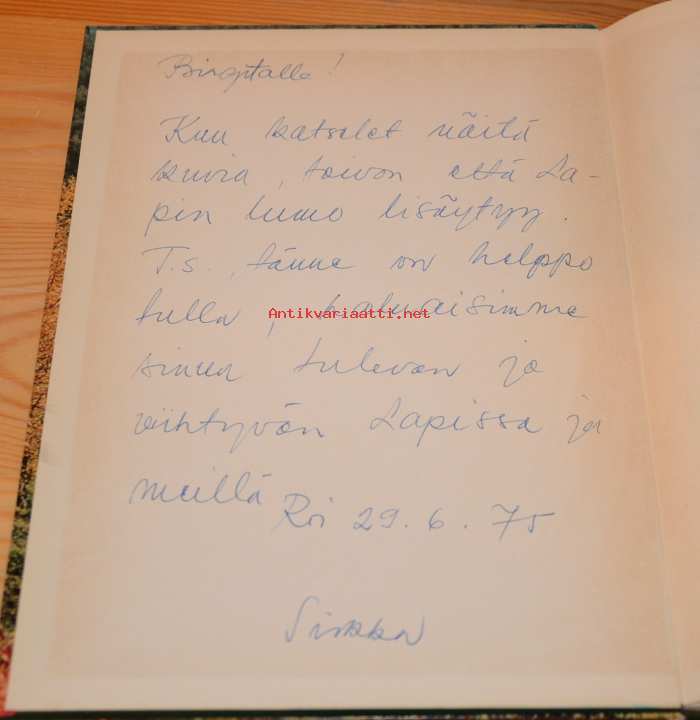 Birgitalle!
Kun katselet näitä
kuvia, toivon että La-
pin lumo lisäytyy.
T.s. tänne on helppo
tulla, haluaisimme
Antikvariaatti.net
sinun tulevan ja
viihtyvän Lapissa ja
meillä
Roi 29.6.75
Sirkka